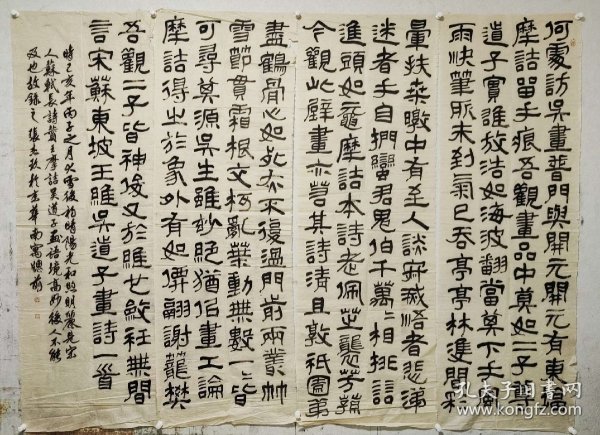 何處訪吳畫普門與開元開元有東塔
摩詰留手痕吾觀畫品中莫如二子尊
道子實雄放浩如海波翻當其下手風
雨快筆所未到氣已吞亭亭林雙間彩
暈扶桑暾中有至人談寂滅悟者悲涕
迷者手自捫蠻君鬼伯千萬萬相排競
進頭如黿摩詰本詩老佩芷襲芳蓀
今觀此壁畫亦若其詩清且敦祇園弟
盡鶴骨心如死灰不復溫門前兩叢竹
雪節貫霜根交柯亂葉動無數一一皆
可尋其源吳生雖妙絕猶以畫工論
摩詰得之于象外有如僊翮謝籠樊
吾觀二子皆神俊又於維也斂衽無間
言宋蘇東坡王維吳道子畫詩一首
時己亥年丙子之月大雪後初晴陽光和煦明麗是宋
人蘇軾長詩贊王摩詰吳道子畫語境高妙後人不能
及也敬錄之於京華南寓牕前
孔夫子旧书网
www.kongfz.com